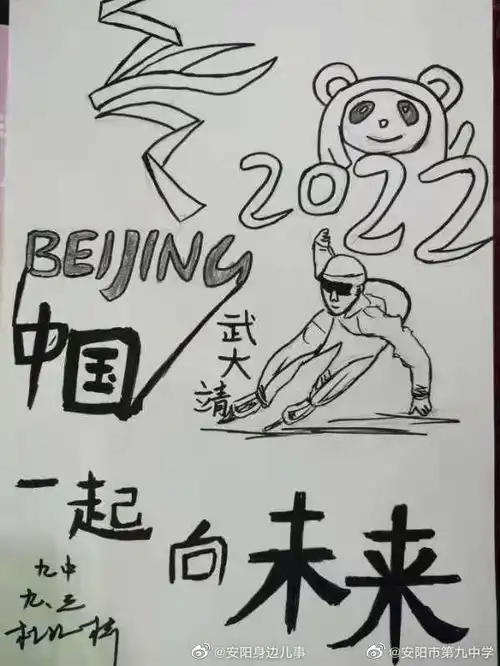 2022
BEIJING
中国
武大靖
一起
向未来
九中
九、三
@安阳身边儿事 @安阳市第九中学